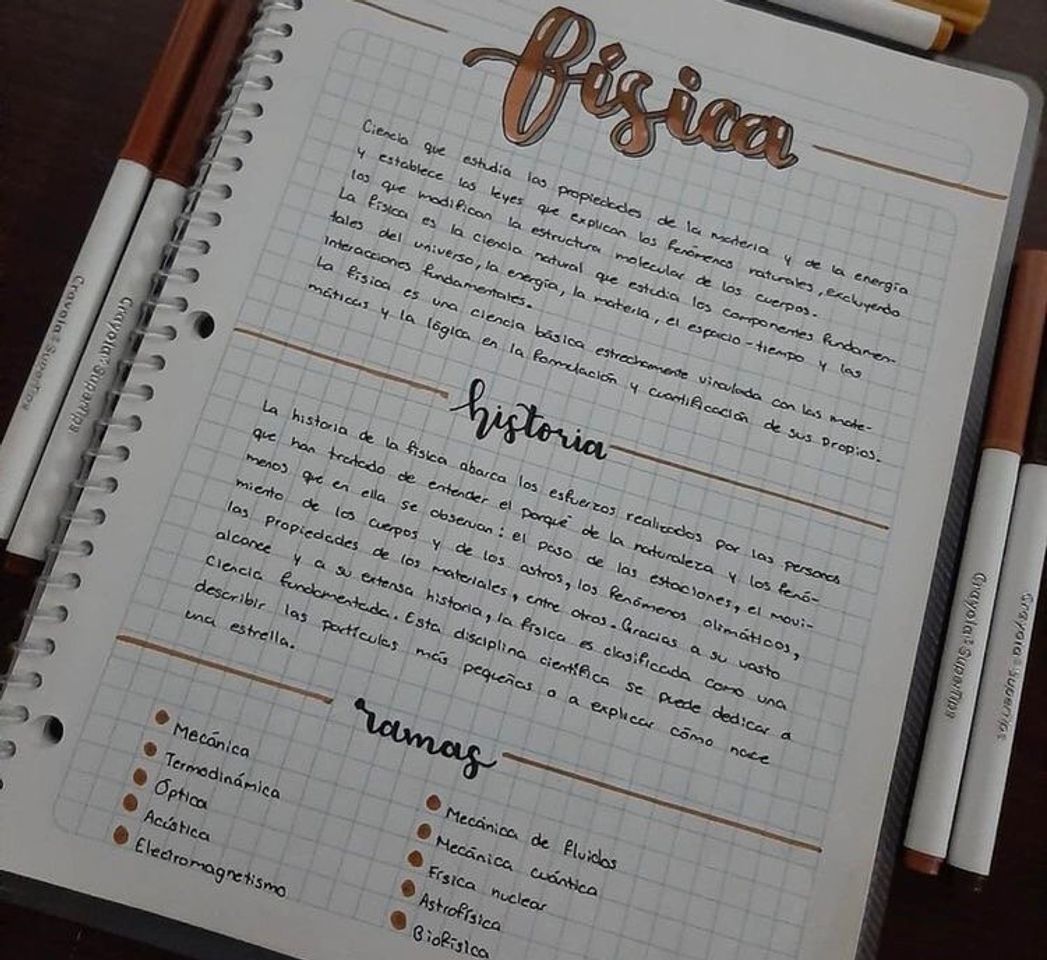 física
Ciencia que estudia las propiedades de la materia y de la energía
y establece las leyes que explican los fenómenos naturales, excluyendo
los que modifican la estructura molecular de los cuerpos.
La física es la ciencia natural que estudia los componentes fundamen-
tales del universo, la energía, la materia, el espacio-tiempo y las
interacciones fundamentales.
La física es una ciencia básica estrechamente vinculada con las mate-
máticas y la lógica en la formulación y cuantificación de sus propios.
historia
La historia de la física abarca los esfuerzos realizados por las personas
que han tratado de entender el porqué de la naturaleza y los fenó-
menos que en ella se observan: el paso de las estaciones, el movi-
miento de los cuerpos y de los astros, los fenómenos climáticos,
las propiedades de los materiales, entre otros. Gracias a su vasto
alcance y a su extensa historia, la física es clasificada como una
ciencia fundamentada. Esta disciplina científica se puede dedicar a
describir las partículas más pequeñas o a explicar cómo nace
una estrella.
ramas
Mecánica
Termodinámica
Óptica
Acústica
Electromagnetismo
Mecánica de fluidos
Mecánica cuántica
Física nuclear
Astrofísica
Biofísica
Crayola SuperTips
Crayola SuperTips
Crayola SuperTips
Crayola SuperTips